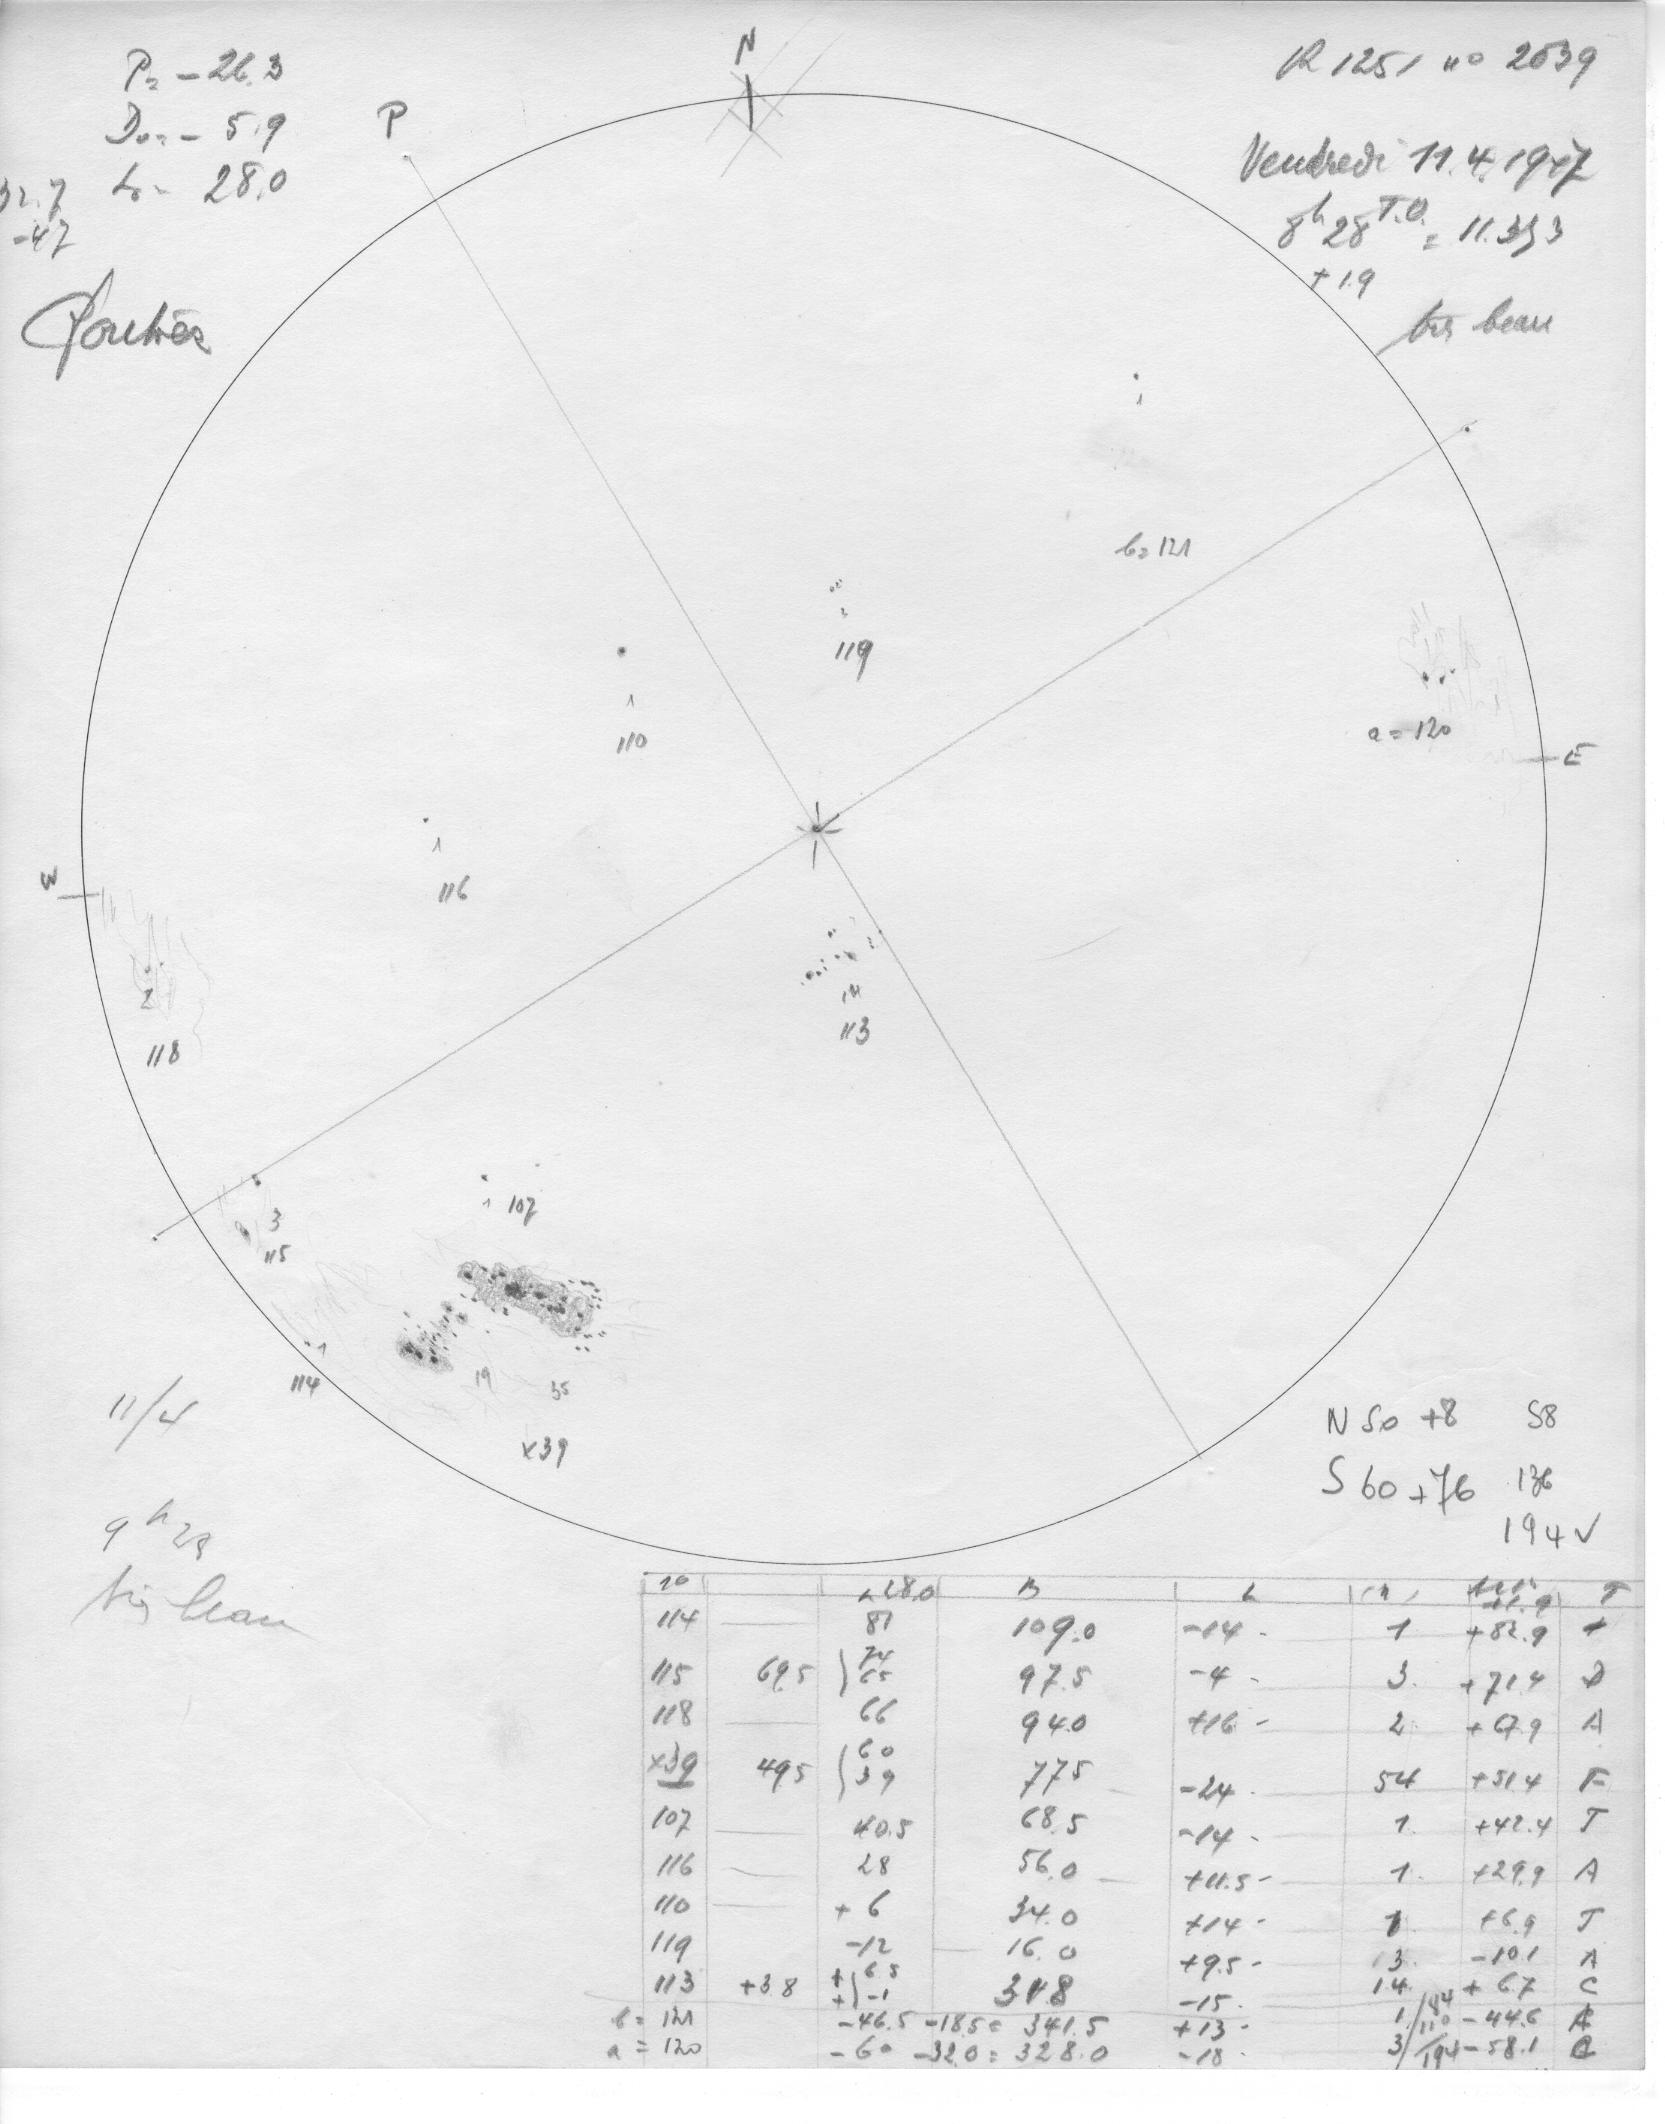 P= -26.3
D₀= - 5.9
L₀= 28.0
32.7
-47
P
N
R 1251 no 2639
Vendredi 11.4.1947
8h 28 T.U. = 11.353
+ 1.9
très beau
1
b=121
2
119
1
110
a=120
E
1
116
W
2
118
14
113
3
115
1
107
1
114
19 35
x39
11/4
9h 28
très beau
N 50 +8 58
S 60 +76 136
194 ✓
no 28.0 B L
114 81 109.0 -14 1 +82.9
115 69.5 74 65 97.5 -4 3 +71.4 D
118 66 94.0 +16 2 +67.9 A
x39 49.5 60 39 77.5 -24 54 +51.4 F
107 40.5 68.5 -14 1 +42.4 J
116 28 56.0 +11.5 1 +29.9 A
110 +6 34.0 +14 1 +6.9 J
119 -12 16.0 +9.5 3 -10.1 A
113 +3.8 +6.5 +-1 31.8 -15 14 +6.7 C
b= 121 -46.5 -18.5= 341.5 +13 1 /84 110 -44.6 A
a= 120 -60 -32.0= 328.0 -18 3 /194 -58.1